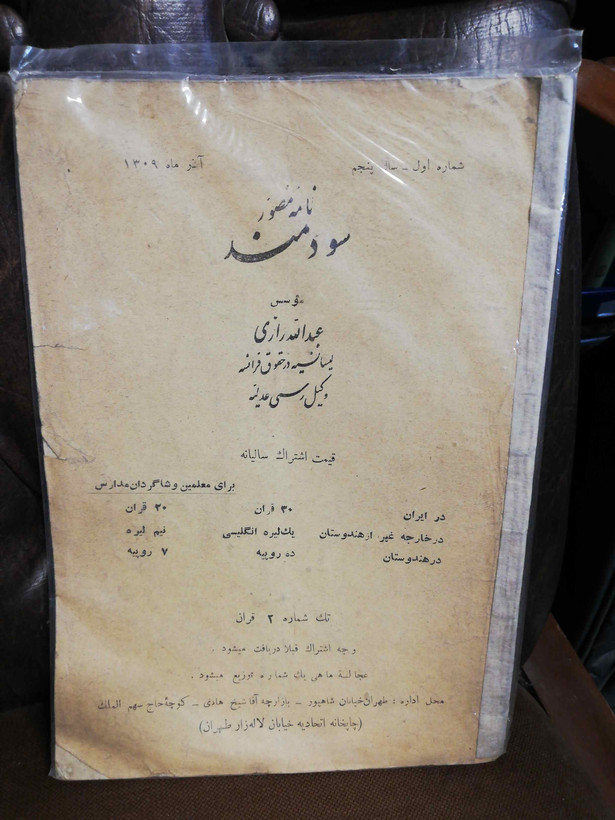 شماره اول ـ سال پنجم آذر ماه ۱۳۰۹
نامه مُصَوَر
سودمند
مؤسس
عبدالله رازی
لیسانسیه در حقوق فرانسه
وکیل رسمی عدلیّه
قیمت اشتراك سالیانه
برای معلمین و شاگردان مدارس
در ایران ۳۰ قران ۲۰ قران
در خارجه غیر از هندوستان یك لیره انگلیسی نیم لیره
در هندوستان ده روپیه ۷ روپیه
تك شماره ۲ قران
وجه اشتراك قبلا دریافت میشود .
عجالة ماهی یك شماره توزیع میشود .
محل اداره : طهران خیابان شاهپور ـ بازارچه آقا شیخ هادی ـ کوچهٔ حاج سهم الملك
(چاپخانه اتحادیه خیابان لاله زار طهران)